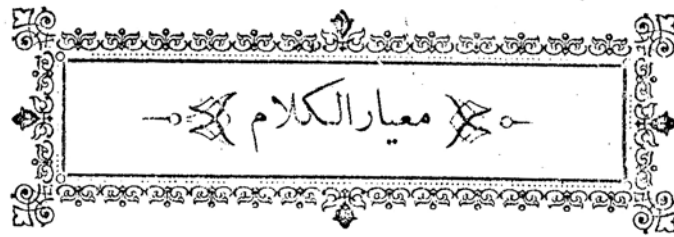 معيار الكلام